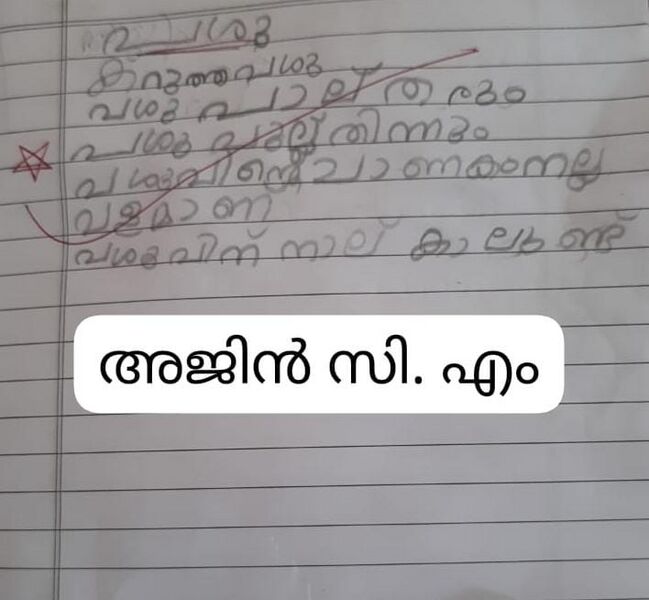 പശു
കറുത്ത പശു
പശു പാല് തരും
പശു പുല്ല് തിന്നും
പശുവിൻ്റെ ചാണകം നല്ല
വളമാണ്
പശുവിന് നാല് കാലുണ്ട്
അജിൻ സി. എം